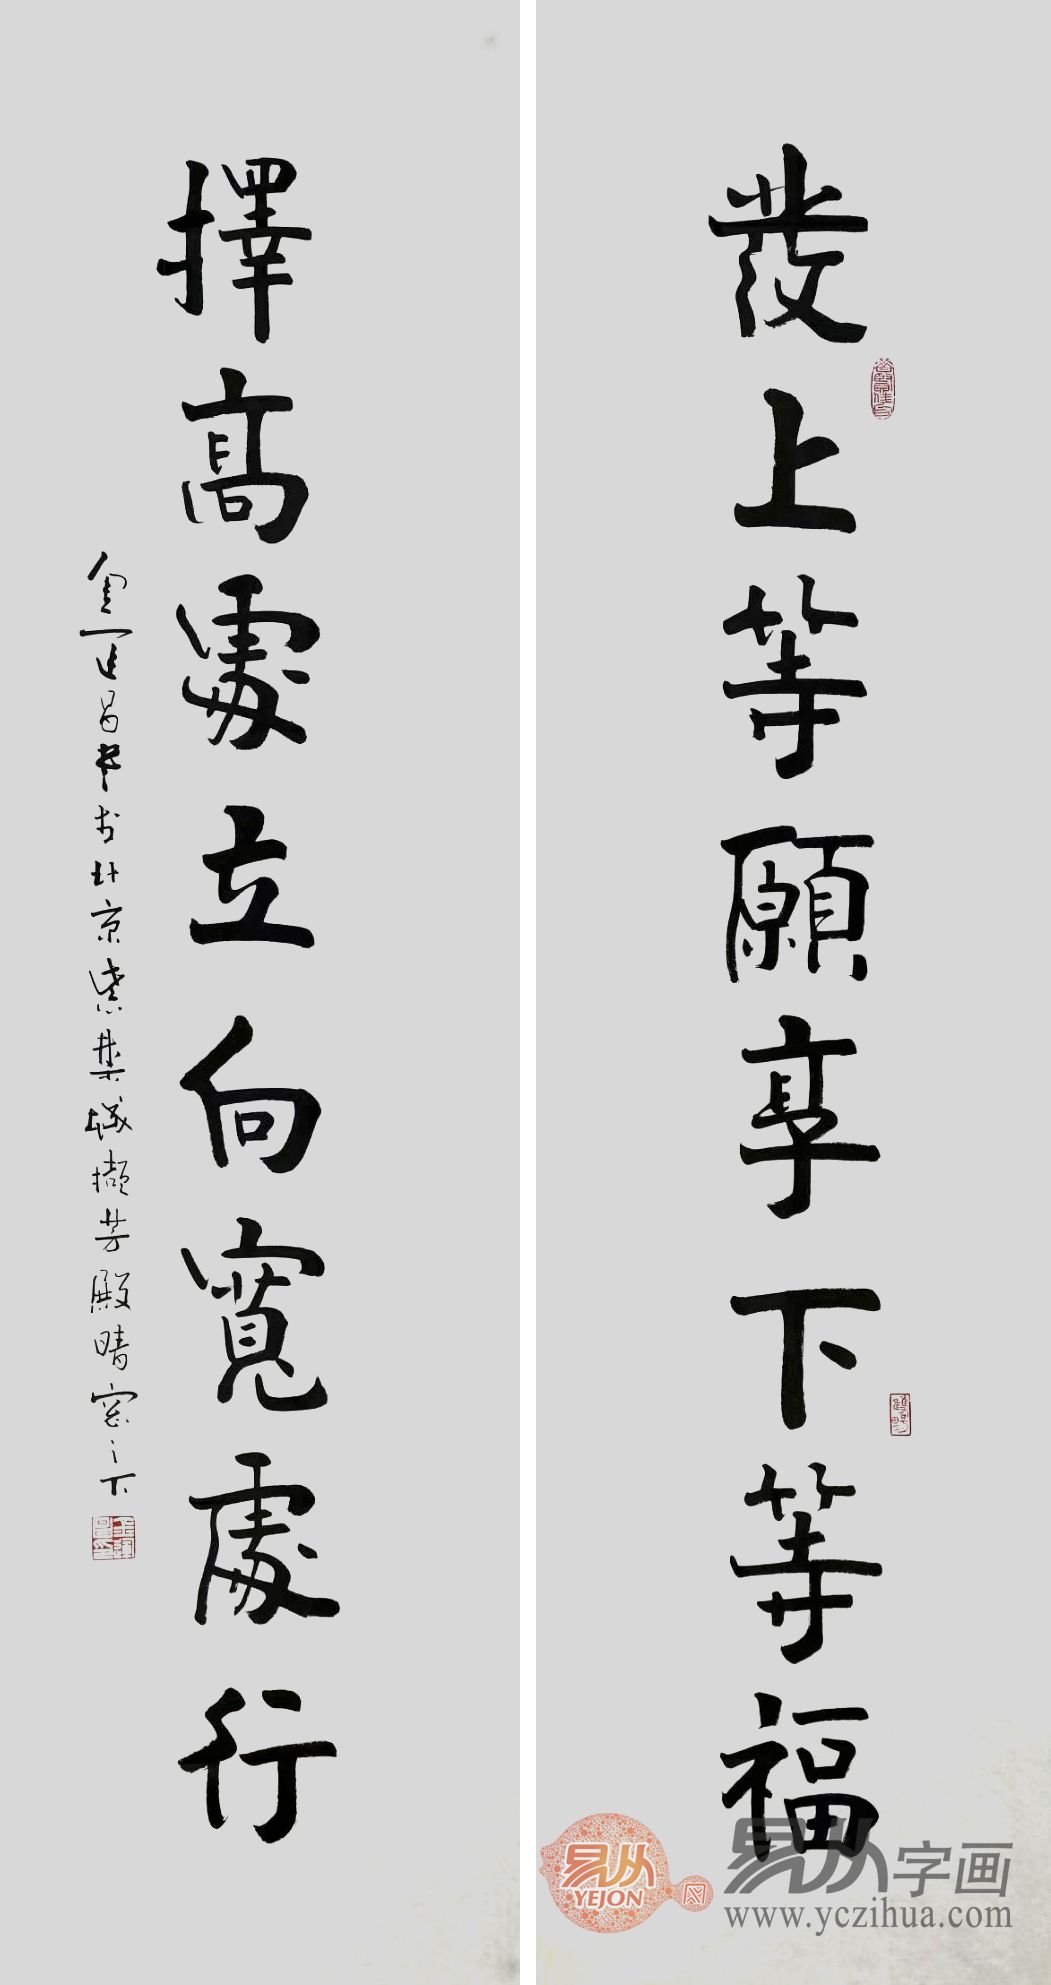 發上等願享下等福
擇高處立向寬處行
金運昌書於北京紫禁城擷芳殿晴窗之下
易从
YEJON
易从字画
www.yczihua.com